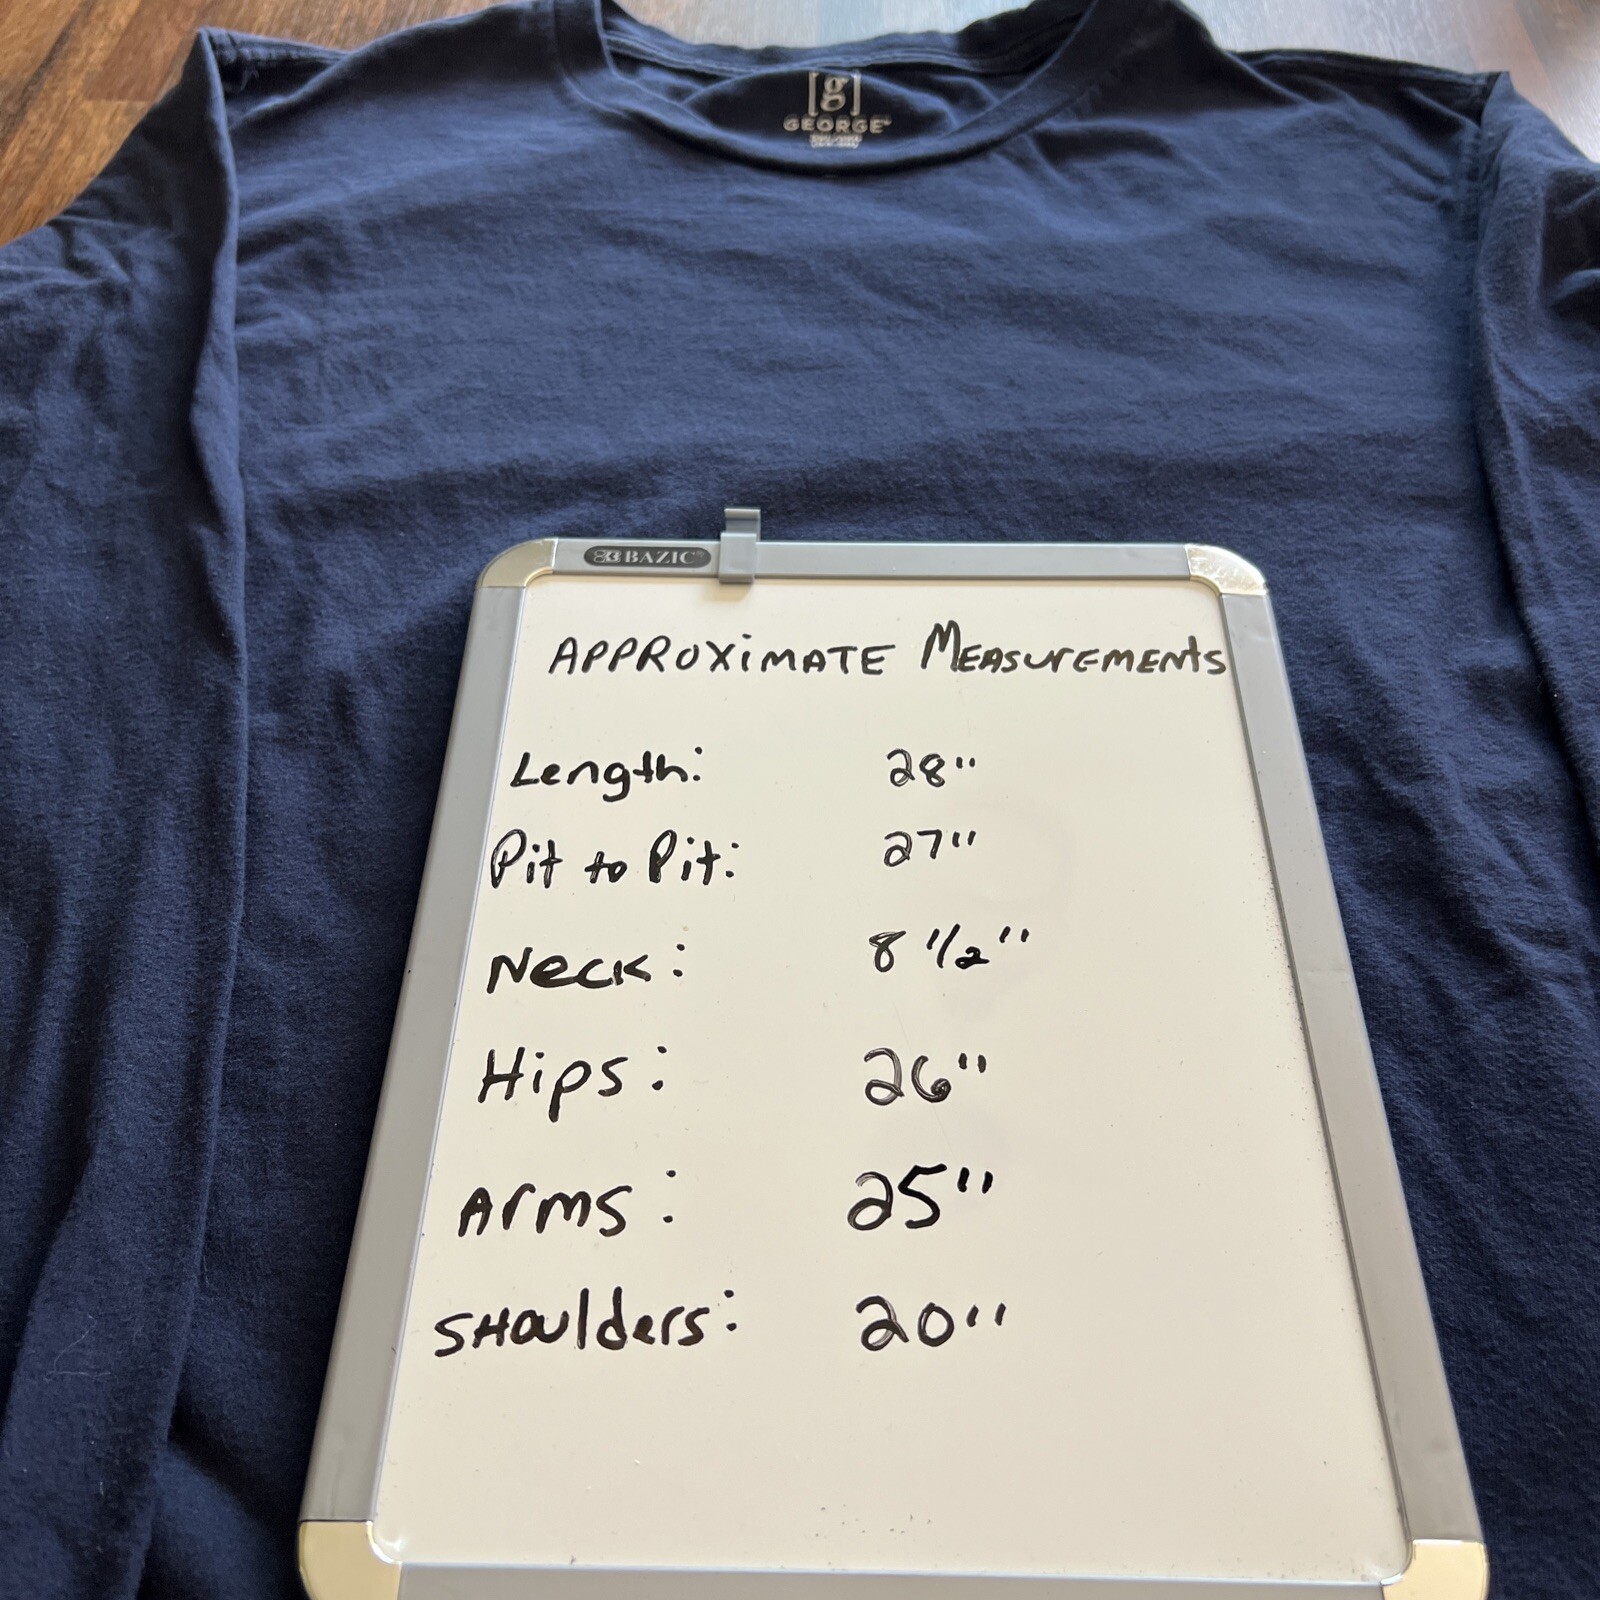 [g]
GEORGE
BAZIC
APPROXiMATE MEASUREMENTS
Length: 28"
Pit to Pit: 27"
Neck: 8 1/2"
Hips: 26"
Arms: 25"
SHoulders: 20"